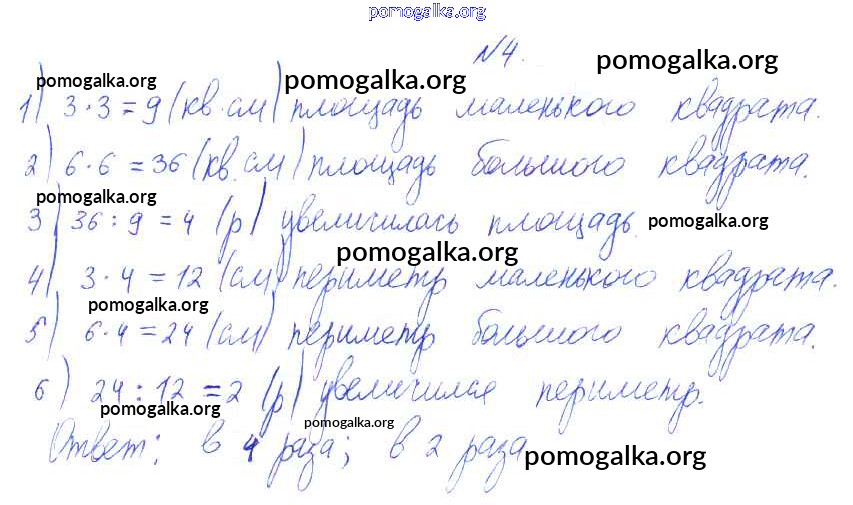 pomogalka.org
№4. pomogalka.org
pomogalka.org pomogalka.org
1) 3·3=9 (кв.см) площадь маленького квадрата.
2) 6·6=36 (кв.см) площадь большого квадрата.
pomogalka.org
3) 36:9=4 (р) увеличилась площадь. pomogalka.org
pomogalka.org
4) 3·4=12 (см) периметр маленького квадрата.
pomogalka.org
5) 6·4=24 (см) периметр большого квадрата.
6) 24:12=2 (р) увеличился периметр.
pomogalka.org
pomogalka.org
Ответ: в 4 раза; в 2 раза
pomogalka.org